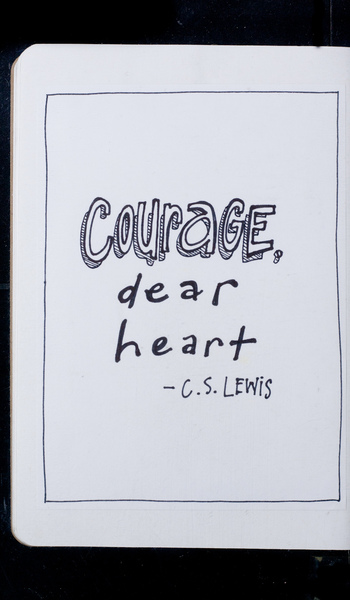 COURAGE,
dear
heart
- C.S. LEWIS